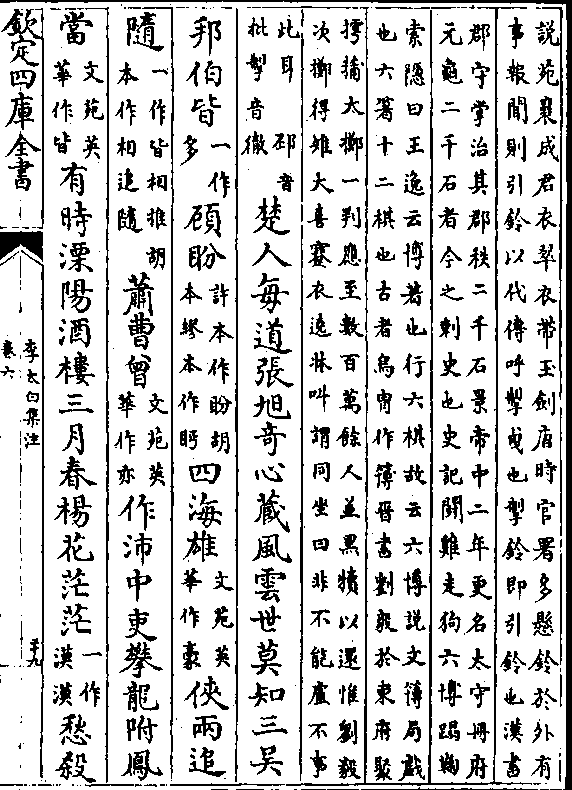 說苑襄成君衣翠衣帶玉劍唐時官署多懸鈴於外有
事報聞則引鈴以代傳呼掣曳也掣鈴即引鈴也漢書
郡守掌治其郡秩二千石景帝中二年更名太守冊府
元龜二千石者今之刺史也史記鬭雞走狗六博蹋鞠
索隱曰王逸云博著也行六棋故云六博說文簙局戲
也六箸十二棋也古者烏胄作簙晉書劉毅於東府聚
摴蒱大擲一判應至數百萬餘人並黑犢以還惟劉毅
次擲得雉大喜褰衣遶牀叫謂同坐曰非不能盧不事
此耳 邳音批掣音徹 楚人每道張旭奇心藏風雲世莫知三吳
邦伯皆一作多顧盼許本作盻胡本繆本作眄四海雄文苑英華作豪俠兩追
隨一作皆相推胡本作相追隨蕭曹曾文苑英華作亦作沛中吏攀龍附鳳
當文苑英華作皆有時溧陽酒樓三月春楊花茫茫一作漠漠愁殺
欽定四庫全書
李太白集注
卷六